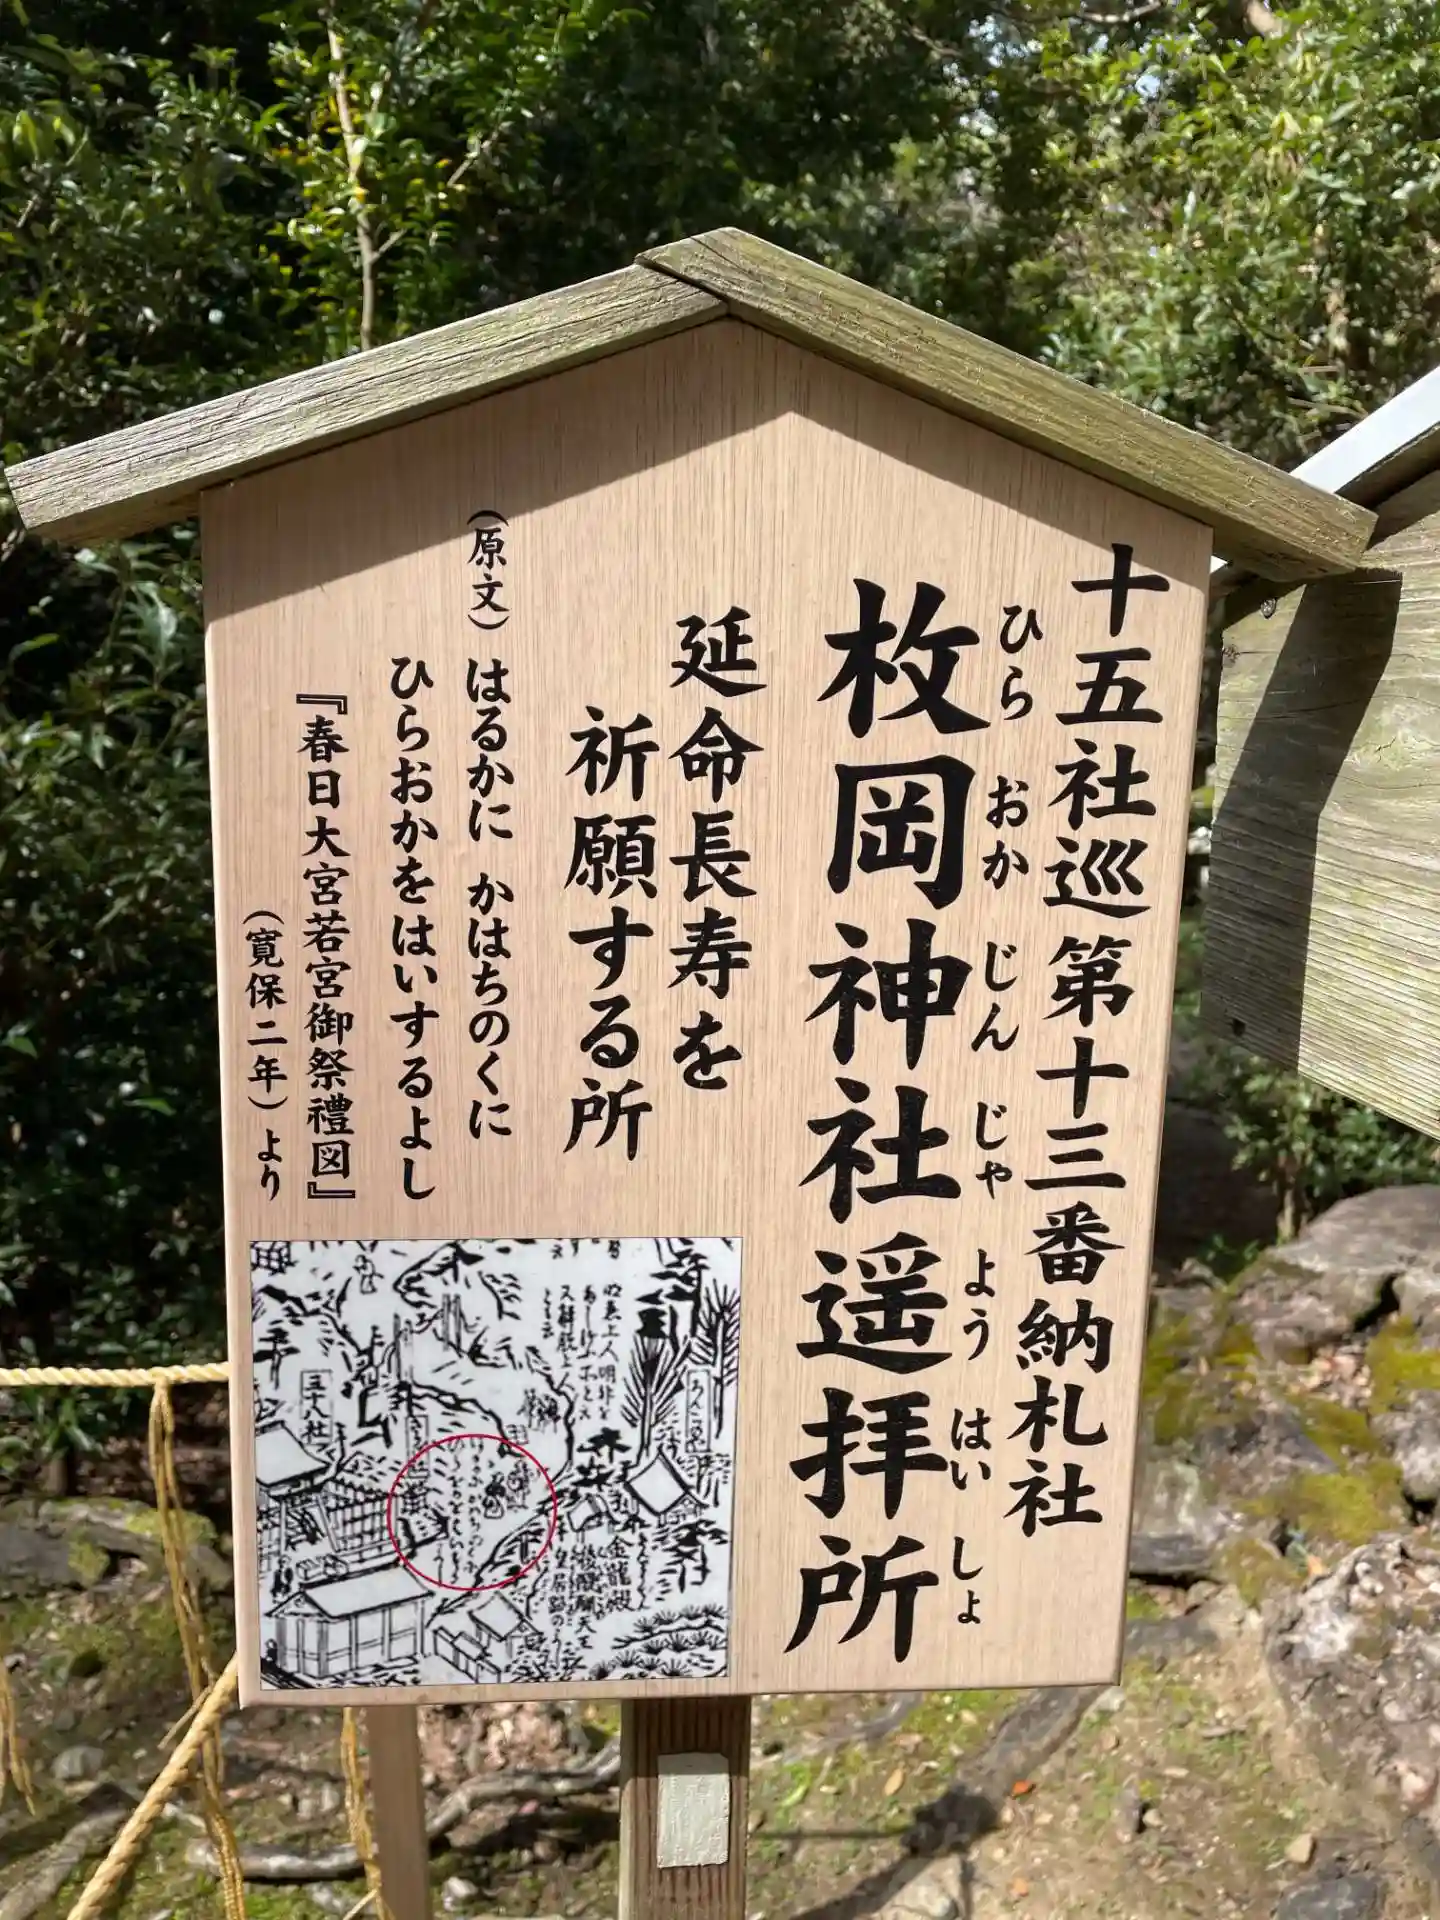 十五社巡第十三番納札社
枚岡神社遥拝所
ひらおかじんじゃようはいしょ
延命長寿を
祈願する所
(原文)はるかに かはちのくに
ひらおかをはいするよし
『春日大宮若宮御祭禮図』
(寛保二年)より
三十八社
金龍殿
後醍醐天王
皇居跡のよし